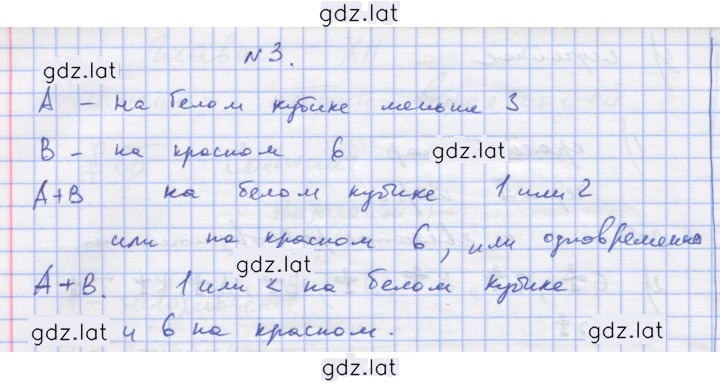 gdz.lat
N3.
gdz.lat
A - на белом кубике меньше 3
B - на красном 6
gdz.lat
A+B на белом кубике 1 или 2
или на красном 6, или одновременно
gdz.lat
A+B. 1 или 2 на белом кубике
gdz.lat
и 6 на красном.
gdz.lat
gdz.lat